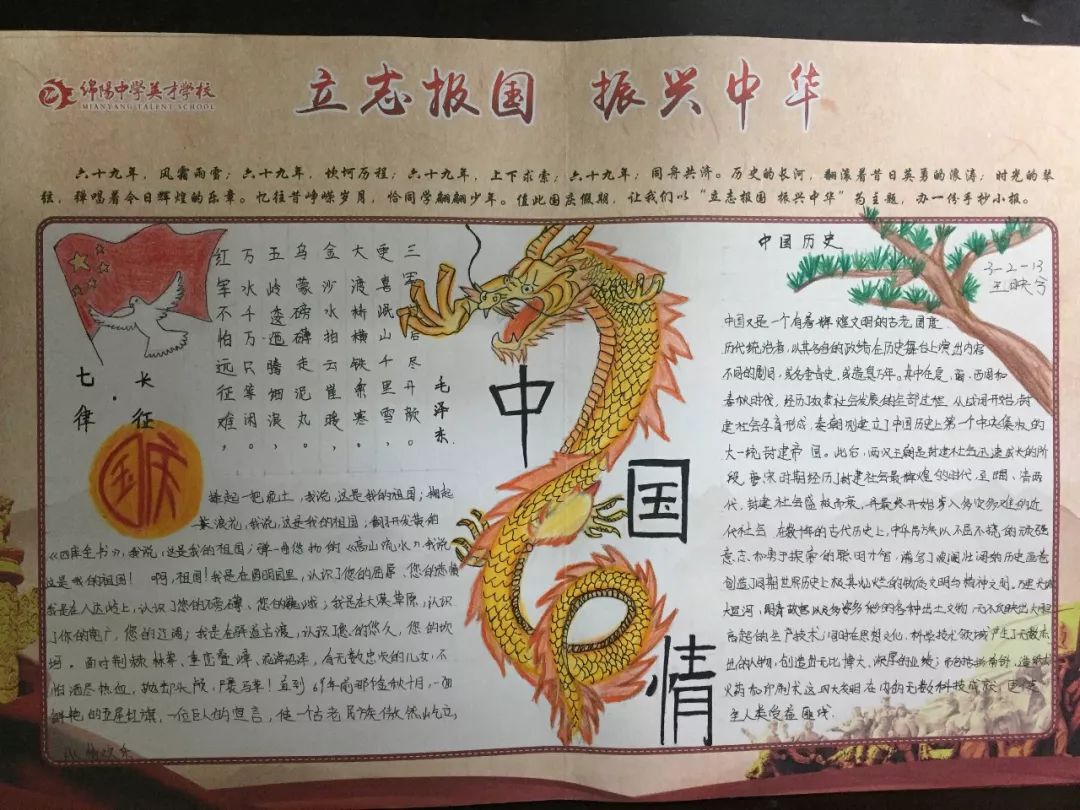 绵阳中学英才学校
MIANYANG TALENT SCHOOL
立志报国 振兴中华
六十九年，风霜雨雪；六十九年，坎坷历程；六十九年，上下求索；六十九年；同舟共济。历史的长河，翻滚着昔日英勇的浪涛；时光的琴
弦，弹唱着今日辉煌的乐章。忆往昔峥嵘岁月，恰同学翩翩少年。值此国庆假期，让我们以“立志报国 振兴中华”为主题，办一份手抄小报。
七律
长征
毛泽东
红军不怕远征难，
万水千万只等闲。
五岭逶迤腾细浪，
乌蒙磅礴走泥丸。
金沙水拍云崖暖，
大渡桥横铁索寒。
更喜岷山千里雪，
三军后尽开颜。
国庆
捧起一把泥土，我说，这是我的祖国；掬起
一朵浪花，我说，这是我的祖国；翻开发黄的
《四库全书》，我说，这是我的祖国；弹一曲悠扬的《高山流水》，我说
这是我的祖国！ 啊，祖国！我是在圆明园里，认识了您的屈辱、您的悲愤
我是在八达岭上，认识了您的磅礴、您的巍峨；我是在大漠草原，认识
了你的宽广，您的辽阔；我是在丝道古渡，认识了您的悠久，您的坎
坷。面对荆棘林莽，重峦叠嶂，泥泞沼泽，有无数忠贞的儿女，不
怕洒尽热血，抛却头颅，马革！直到69年前那个金秋十月，一面
鲜艳的五星红旗，一位巨人的宣言，使一个古老民族傲然屹立，
中国情
中国历史
3-2-13
王映
中国又是一个有着辉煌文明的古老国度
历代统治者，以其各自的政绩在历史舞台上演出内容
不同的剧目，或名垂青史，或遗臭万年。其中在夏、商、西周和
春秋时代，经历了奴隶社会发展的全部过程。从战国开始，封
建社会孕育形成，秦朝则建立了中国历史上第一个中央集权的
大一统封建帝国。此后，两汉王朝是封建社会迅速成长的阶
段，唐宋时期经历了封建社会最辉煌的时代，至明、清两
代，封建社会盛极而衰，并最终开始步入多灾多难的近
代社会。在数千年的古代历史上，中华民族以不屈不挠的顽强
意志，勇于探索的聪明才智，谱写了波澜壮阔的历史画卷
创造了同期世界历史上极其灿烂的物质文明与精神文明，万里长城
大运河，明清故宫以及多姿多彩的各种出土文物，无不反映出大
高超的生产技术；同时在思想文化、科学技术领域产生了无数杰
出的人物，创造出无比博大、深厚的业绩；而包括指南针、造纸
火药和印刷术这四大发明在内的无数科技成就，更使
全人类受益匪浅。